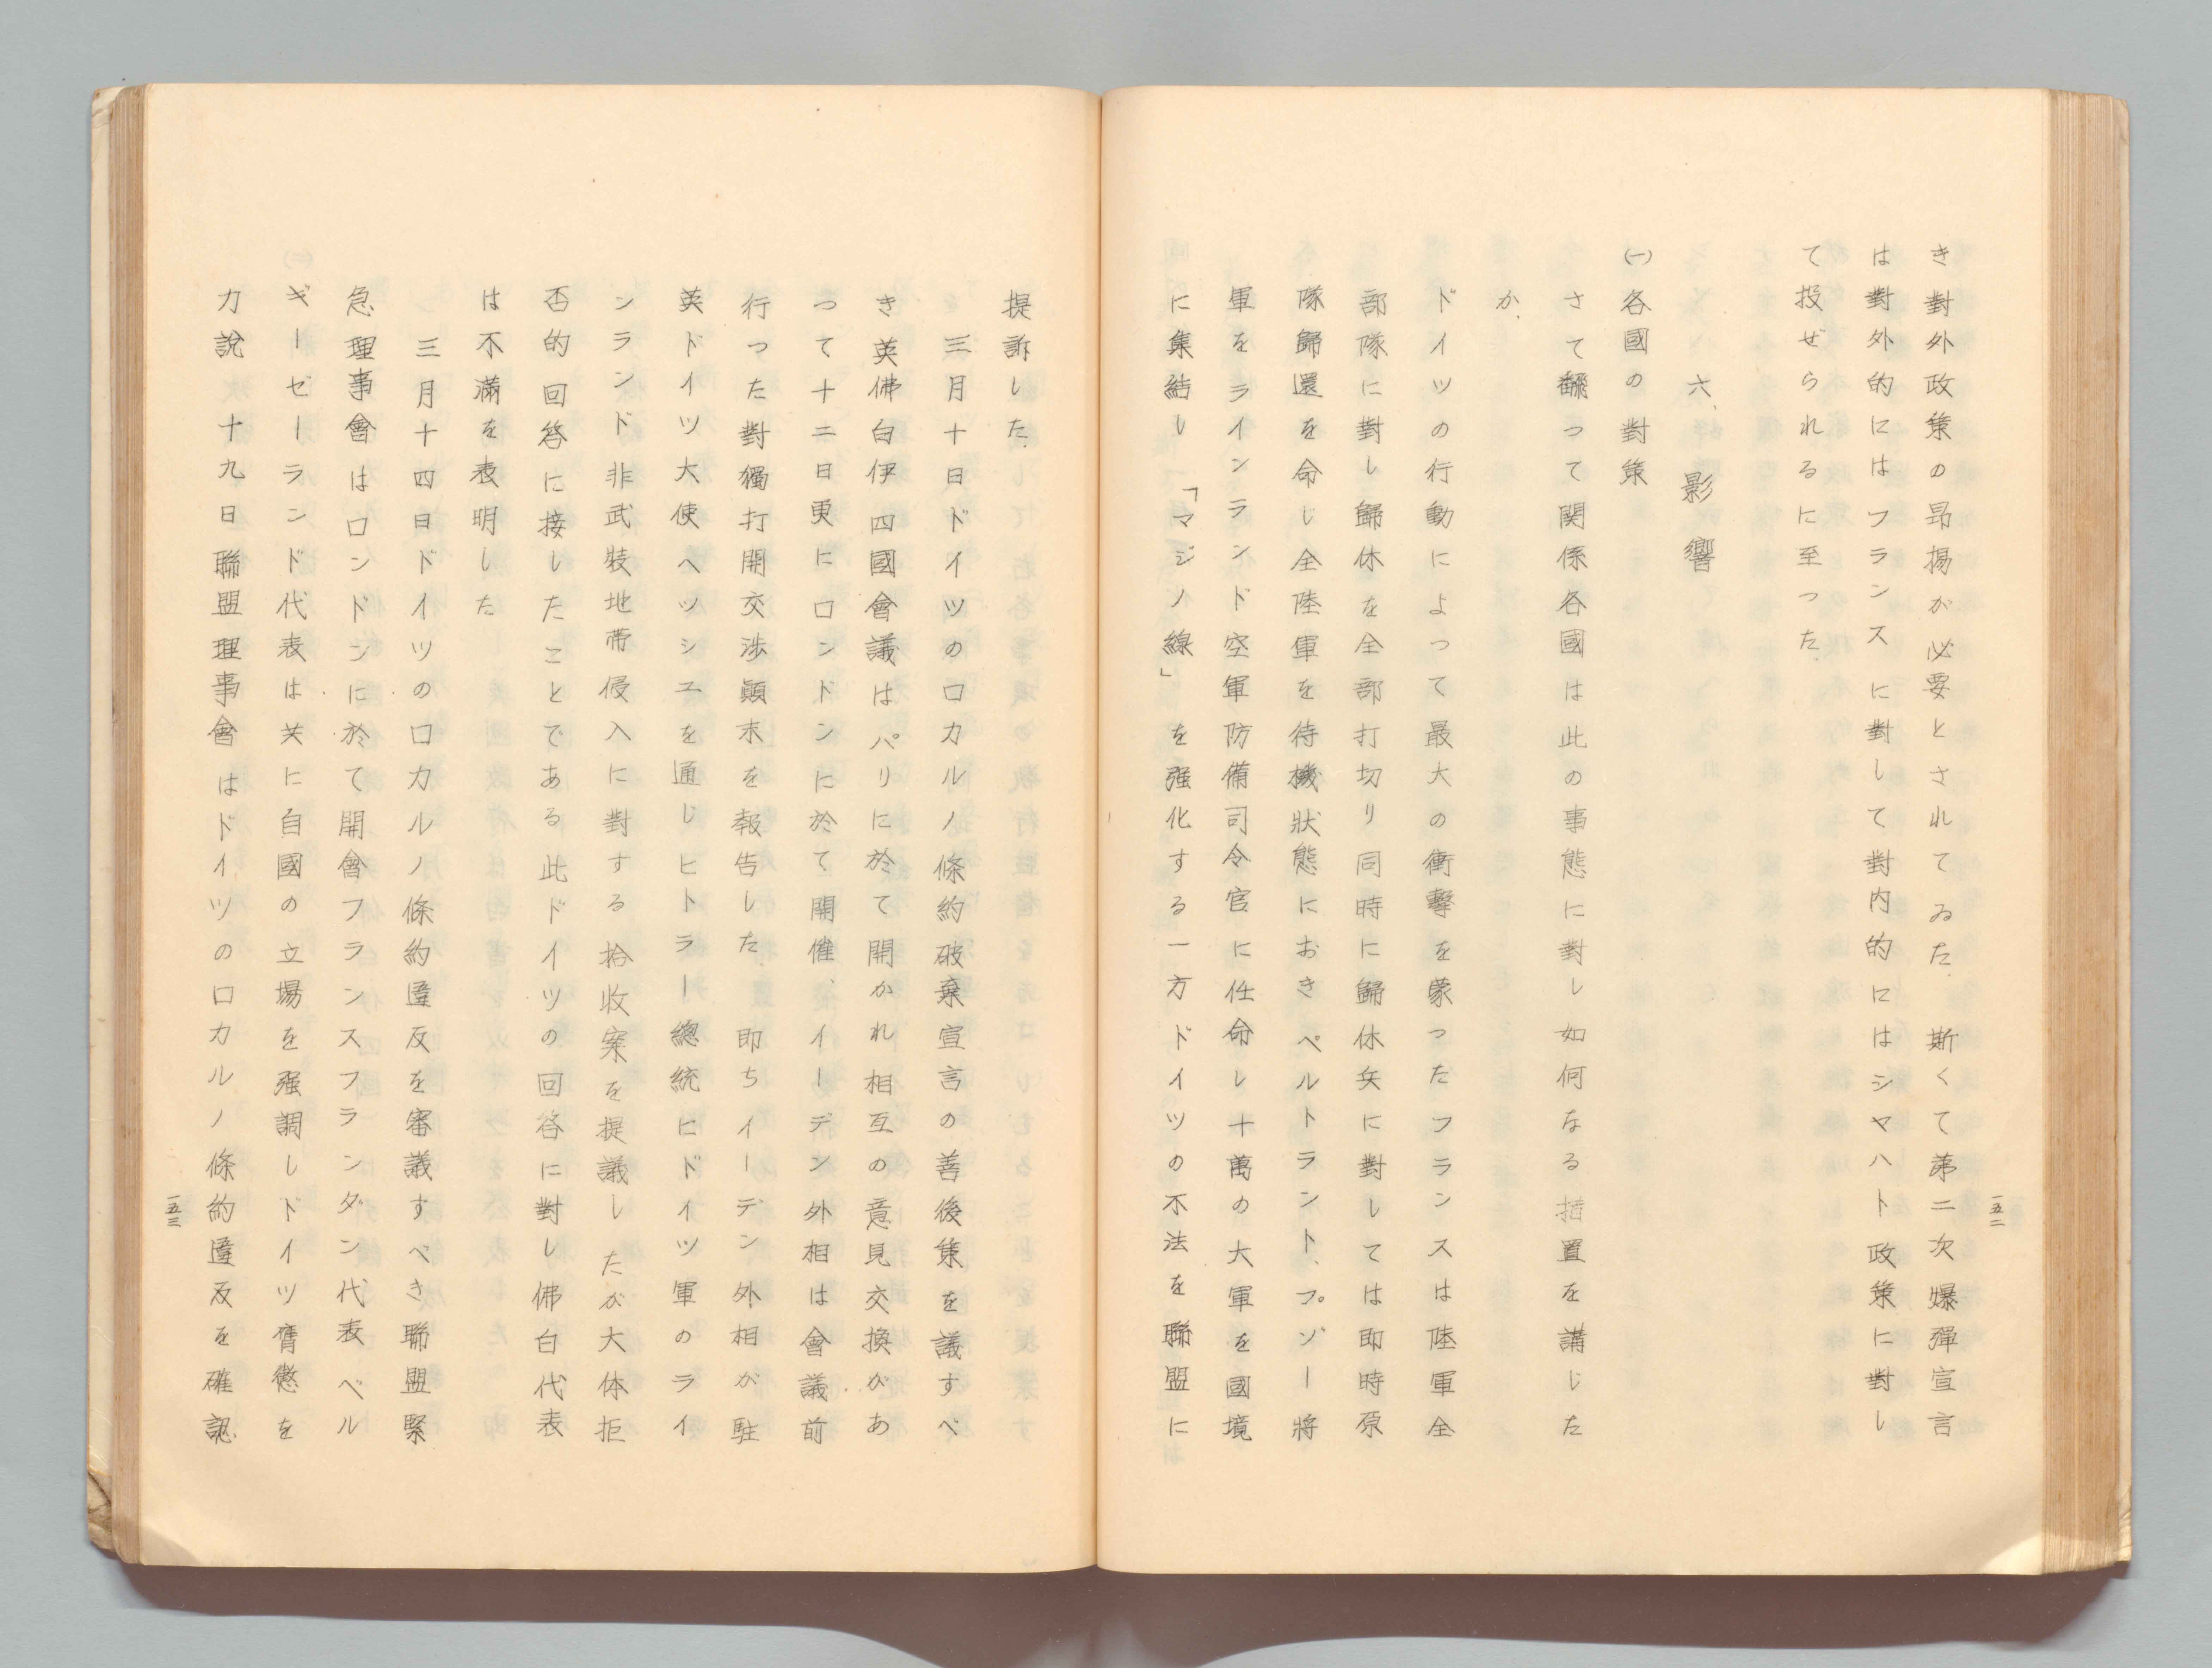 き對外政策の昂揚が必要とされてゐた。斯くて第二次爆彈宣言
は對外的にはフランスに對して對内的にはシヤハト政策に對し
て投ぜられるに至つた。
六、影響
㈠各國の對策
さて飜つて関係各國は此の事態に對し如何なる措置を講じた
か。
ドイツの行動によつて最大の衝擊を蒙つたフランスは陸軍全
部隊に對し歸休を全部打切り同時に歸休兵に對しては即時原
隊歸還を命じ全陸軍を待機狀態におきベルトラント、プゾー將
軍をラインランド空軍防備司令官に任命し十萬の大軍を國境
に集結し「マジノ線」を强化する一方ドイツの不法を聯盟に
一五二
提訴した。
三月十日ドイツのロカルノ條約破棄宣言の善後策を議すべ
き英佛白伊四國會議はパリに於て開かれ相互の意見交換があ
つて十二日更にロンドンに於て開催、イーデン外相は會議前
行つた對獨打開交渉顚末を報告した。即ちイーデン外相が駐
英ドイツ大使ヘツシエを通じヒトラー總統にドイツ軍のライ
ンランド非武裝地帶侵入に對する拾收案を提議したが大体拒
否的回答に接したことである此ドイツの回答に對し佛白代表
は不滿を表明した
三月十四日ドイツのロカルノ條約違反を審議すべき聯盟緊
急理事會はロンドンに於て開會フランスフランダン代表ベル
ギーゼーランド代表は共に自國の立場を强調しドイツ膺懲を
力說十九日聯盟理事會はドイツのロカルノ條約違反を確認
一五三